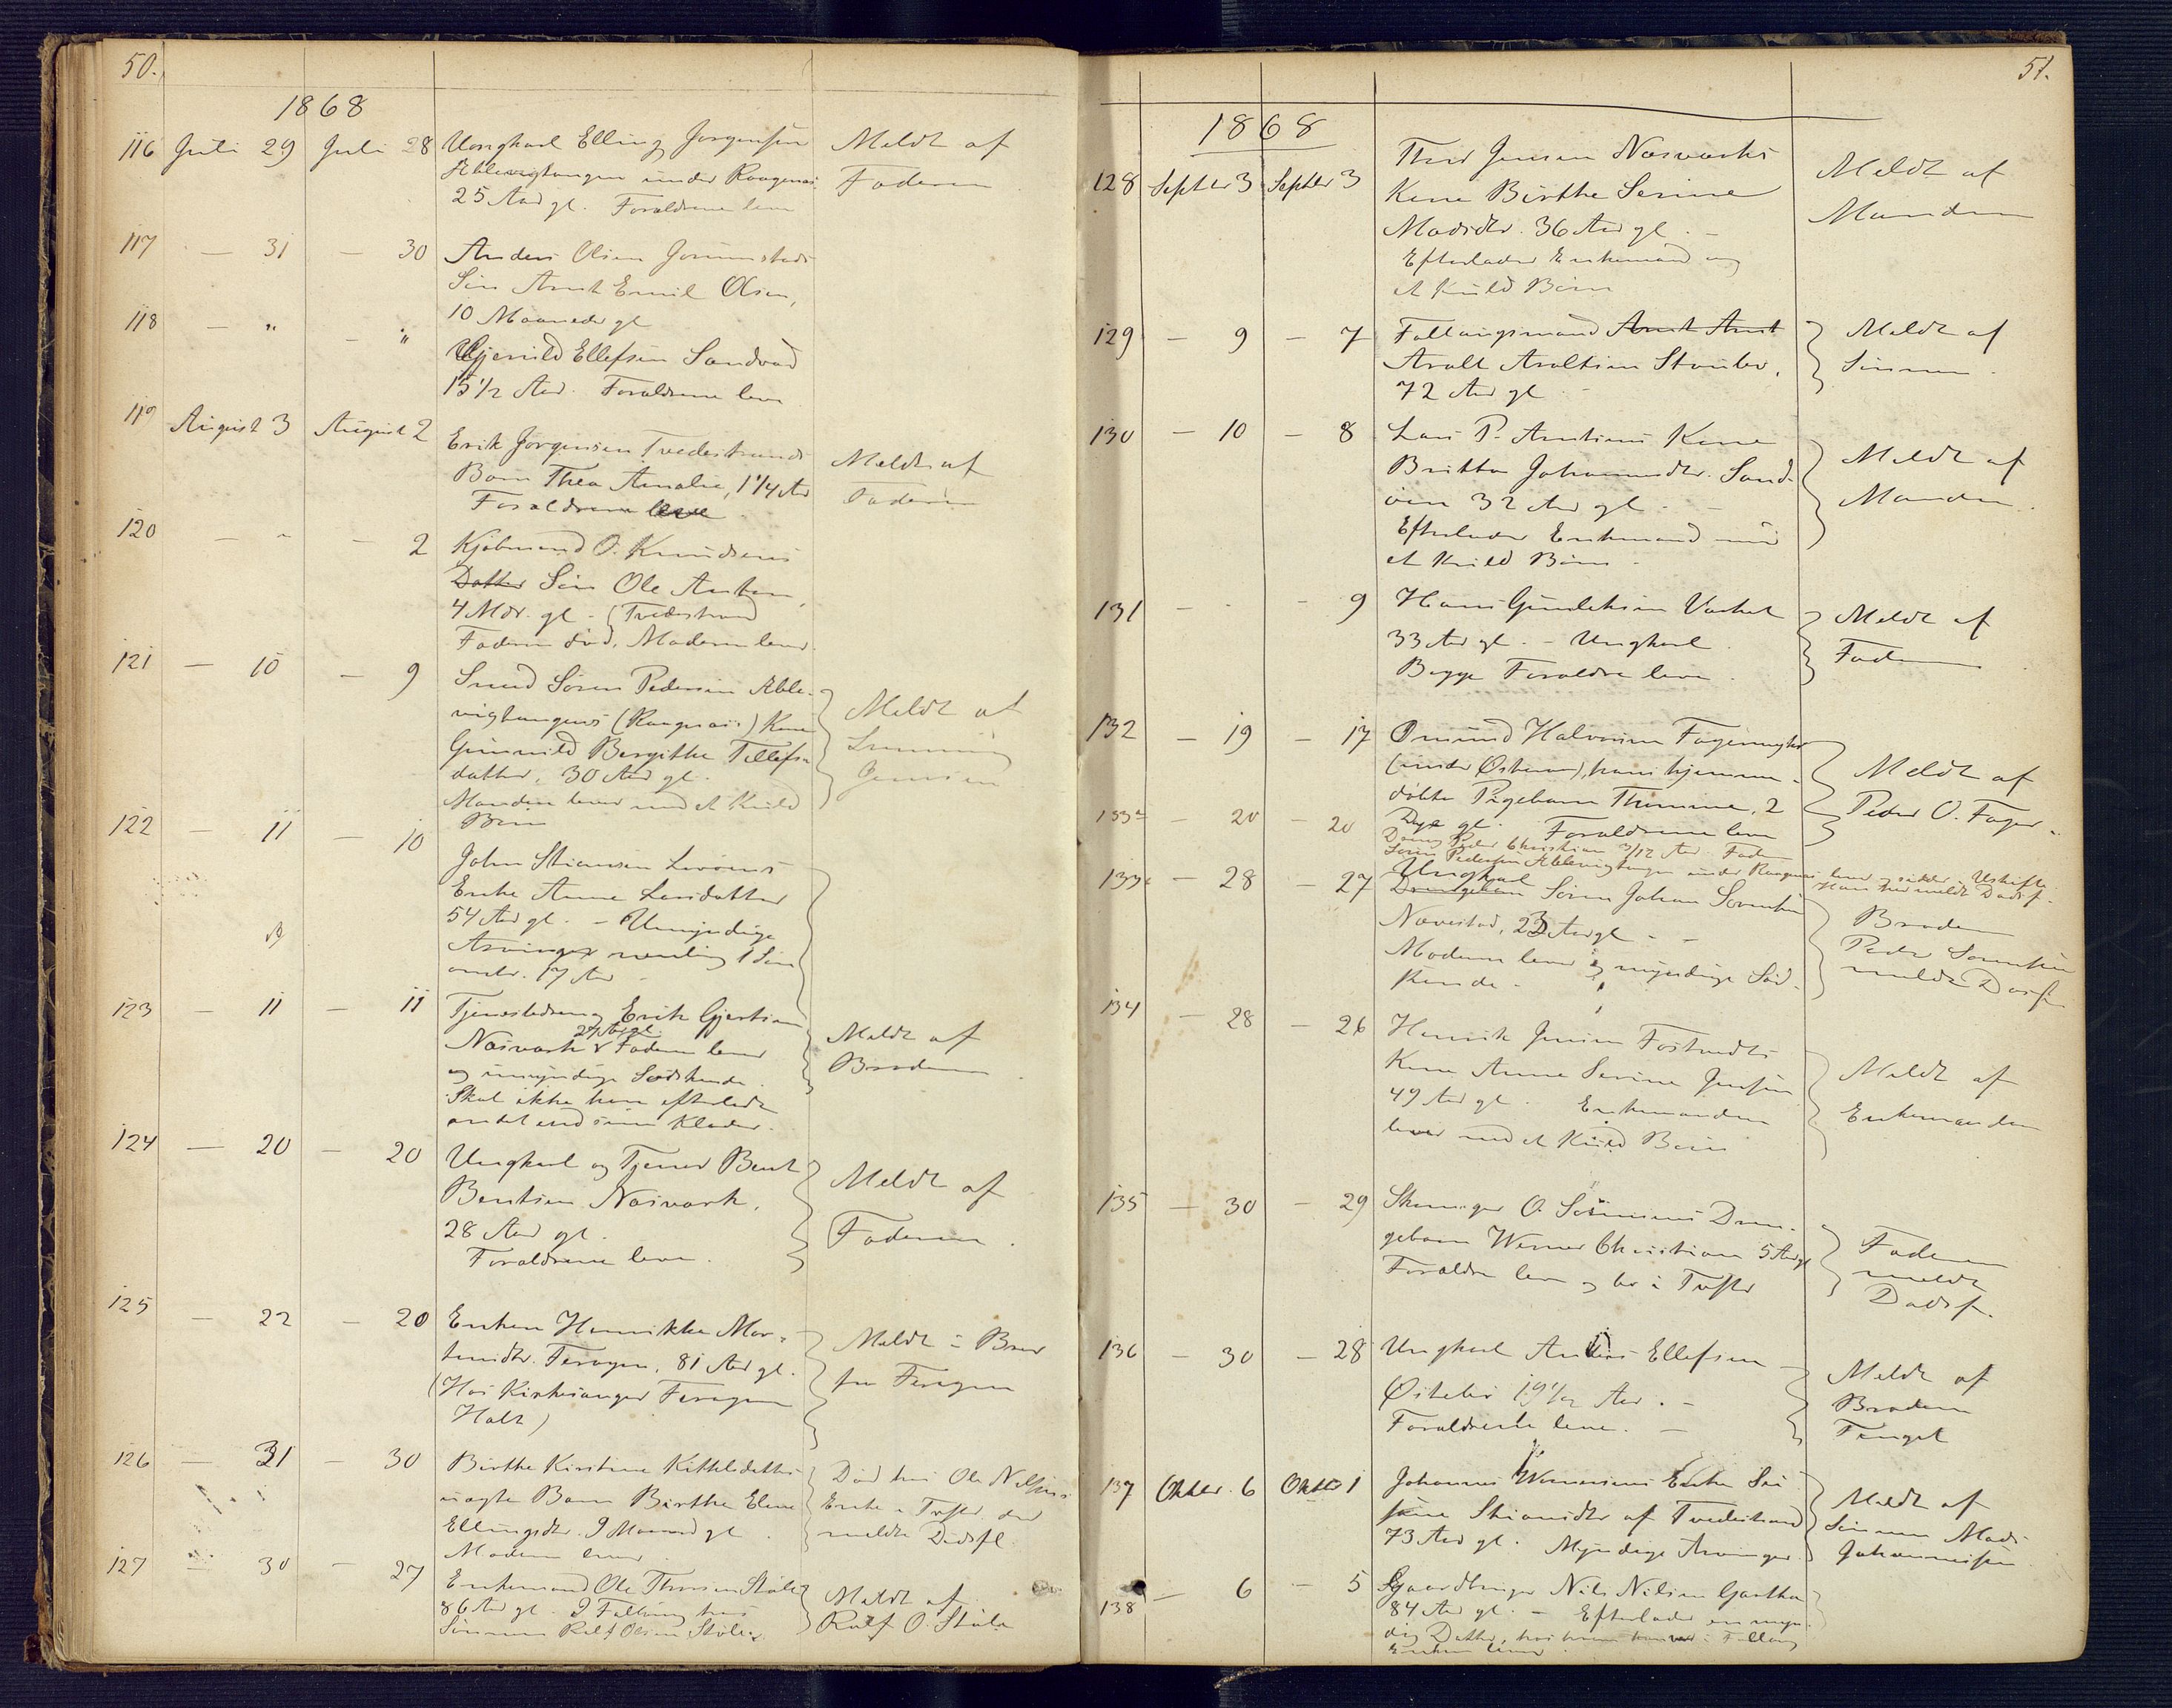 50.
1868
116 Juli 29 Juli 28 Ungkarl Elling Jørgensen Meldt af
Ablevigtangen under Raagenæs Faderen
25 Aar gl. Forældrene leve
117 — 31 — 30 Anders Olsen Goderstads
Søn Arnt Emil Olsen,
10 Maaneder gl
118 — " — " Gjerulf Ellefsen Sandvad
15 1/2 Aar. Forældrene leve
119 August 3 August 2 Erik Jørgensen Tvedestrands Meldt af
Barn Thea Amalie, 1 1/4 Aar Faderen
Forældrene leve
120 — " — 2 Kjøbmand O. Knudsens
Datter Søn Ole Anton,
4 Mdr. gl. (Tvedestrand
Faderen død, Moderen lever.
121 — 10 — 9 Smed Søren Pedersen Able-
vigtangens (Raagenæs) Kone Meldt af
Gunnild Bergithe Tellefs-
datter, 30 Aar gl. Jensen
Manden lever med et Kuld
Børn
122 — 11 — 10 John Stiansen
Enke Anne Larsdatter
54 Aar gl. – Umyndige
Arvinger nemlig 1 Søn
omtr. 17 Aar
123 — 11 — 11 Tjenestedreng Erik Gjertsen
27 Aar gl.
Næsværk Faderen lever Meldt af
og umyndige Sødskende. Broderen
Skal ikke have efterladt
andet end sine Klæder.
124 — 20 — 20 Ungkarl og Tjener Bent Meldt af
Bentsen Næsværk, Faderen.
28 Aar gl.
Forældrene leve.
125 — 22 — 20 Enken Henrikke Mor- Meldt i Brev
tensdtr. Feragen, 81 Aar gl. fra Feragen
(Hos Kirkesanger Feragen
Holt)
126 — 31 — 30 Birthe Kirstine Kittelsdatters Død hos Ole Nilsens
uægte Barn Birthe Elene Enke i Tvester. der
Ellingsdtr. 9 Maaned gl. meldte Dødsfl.
Moderen lever.
127 — 30 — 27 Enkemand Ole Thorsen Støle Meldt af
86 Aar gl. I Føderaad hos Rolf O. Støle
Sønnen Rolf Olsen Støle.
51.
1868
128 Septbr 3 Septbr 3 Thor Jensen Næsværks Meldt af
Kone Birthe Serine Manden
Madsdtr. 36 Aar gl. –
Efterlader Enkemand og
et Kuld Børn
129 — 9 — 7 Fattigmand Arnt Arnt Meldt af
Aralt Araltsen Stoubø, Sønnen.
72 Aar gl
130 — 10 — 8 Lars P. Arntsens Kone Meldt af
Britta Johannesdtr. Sand- Manden.
øen 32 Aar gl. –
Efterlader Enkemand med
et Kuld Børn.
131 — " — 9 Hans Gundersen Meldt af
33 Aar gl. – Ungkarl. Faderen
Begge Forældre leve.
132 — 19 — 17 Omund Halvorsen
(under Østeraa), hans hjemme- Meldt af
døbte Pigebarn Thomine, 2 Peder O. Fager-
Dage gl. Forældrene leve
133a — 20 — 20 Dreng Peder Christian 3/12 Aar. Fader
Søren Pedersen Ablevigtangen under Raagenæs lever og sidder i Uskifte.
Han har meldt Dødsf.
133b — 28 — 27 Ungkarl
Drengebarn Søren Johan Sørensen Broderen
Nævestad, 23 Aar gl. – Peder Sørensen
Moderen lever og myndige Sød- meldte Dødsf.
skende.
134 — 28 — 26 Henrik Jensen Fosstvedts Meldt af
Kone Anne Serine Jensen Enkemanden
49 Aar gl. Enkemanden
lever med et Kuld Børn
135 — 30 — 29 Skomager O. Sørensens Dren- Faderen
gebarn Werner Christian 5 Aar gl meldte
Forældre leve og bo i Tvester Dødsf.
136 — 30 — 28 Ungkarl Anders Ellefsen Meldt af
Østebø 19 1/2 Aar. – Broderen
Forældrene leve. –
137 Oktbr. 6 Oktbr 1 Johannes Wernersens Enke Meldt af
Stiansdtr af Tvedestrand Sønnen Mads
73 Aar gl. Myndige Arvinger. Johannessen
138 — 6 — 5 Gaardbruger Nils Nilsen Gjærtha
84 Aar gl. – Efterlader en myn-
dig Datter, hos hvem han var i
Enken lever.